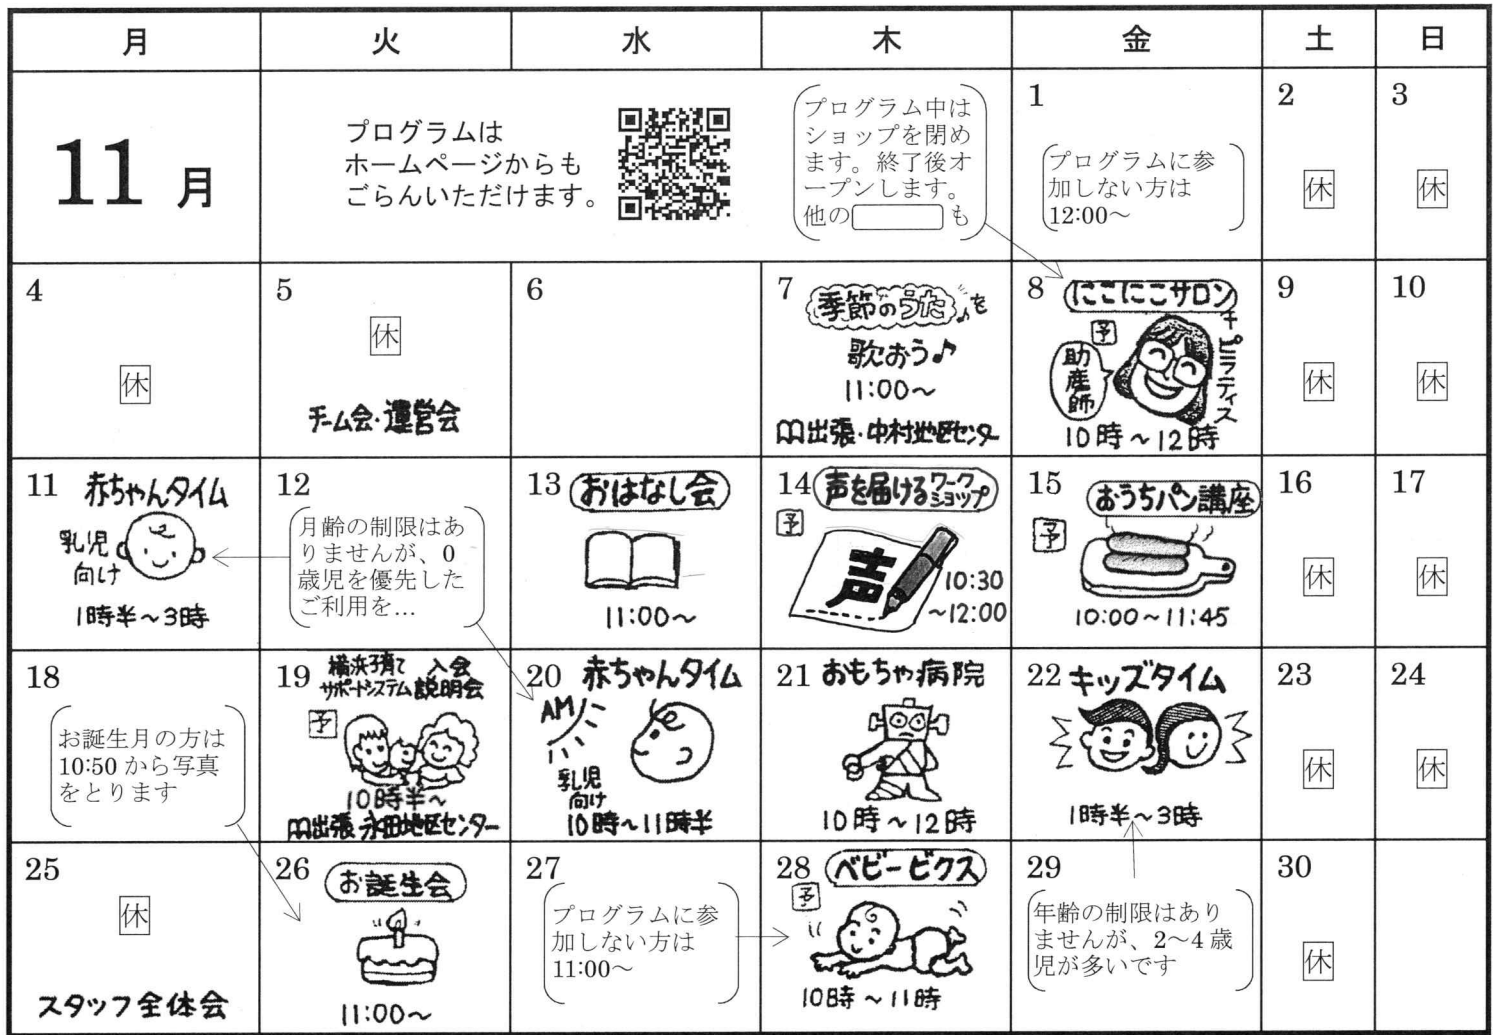 月 火 水 木 金 土 日
11 月
プログラムは
ホームページからも
ごらんいただけます。
プログラム中は
ショップを閉め
ます。終了後オ
ープンします。
他の も
1
プログラムに参
加しない方は
12:00～
2
休
3
休
4
休
5
休
チーム会・運営会
6
7
季節のうた♪を
歌おう♪
11:00～
出張・中村地区センター
8
にこにこサロン
+ピラティス
予
助産師
10時～12時
9
休
10
休
11
赤ちゃんタイム
乳児
向け
1時半～3時
12
月齢の制限はあ
りませんが、0
歳児を優先した
ご利用を…
13
おはなし会
11:00～
14
声を届けるワークショップ
予
声
10:30
～12:00
15
おうちパン講座
予
10:00～11:45
16
休
17
休
18
お誕生月の方は
10:50 から写真
をとります
19
横浜子育て
サポートシステム
入会
説明会
予
10時半～
出張 永田地区センター
20
赤ちゃんタイム
AM
乳児
向け
10時～11時半
21
おもちゃ病院
10時～12時
22
キッズタイム
1時半～3時
23
休
24
休
25
休
スタッフ全体会
26
お誕生会
11:00～
27
プログラムに参
加しない方は
11:00～
28
ベビービクス
予
10時～11時
29
年齢の制限はあり
ませんが、2～4 歳
児が多いです
30
休